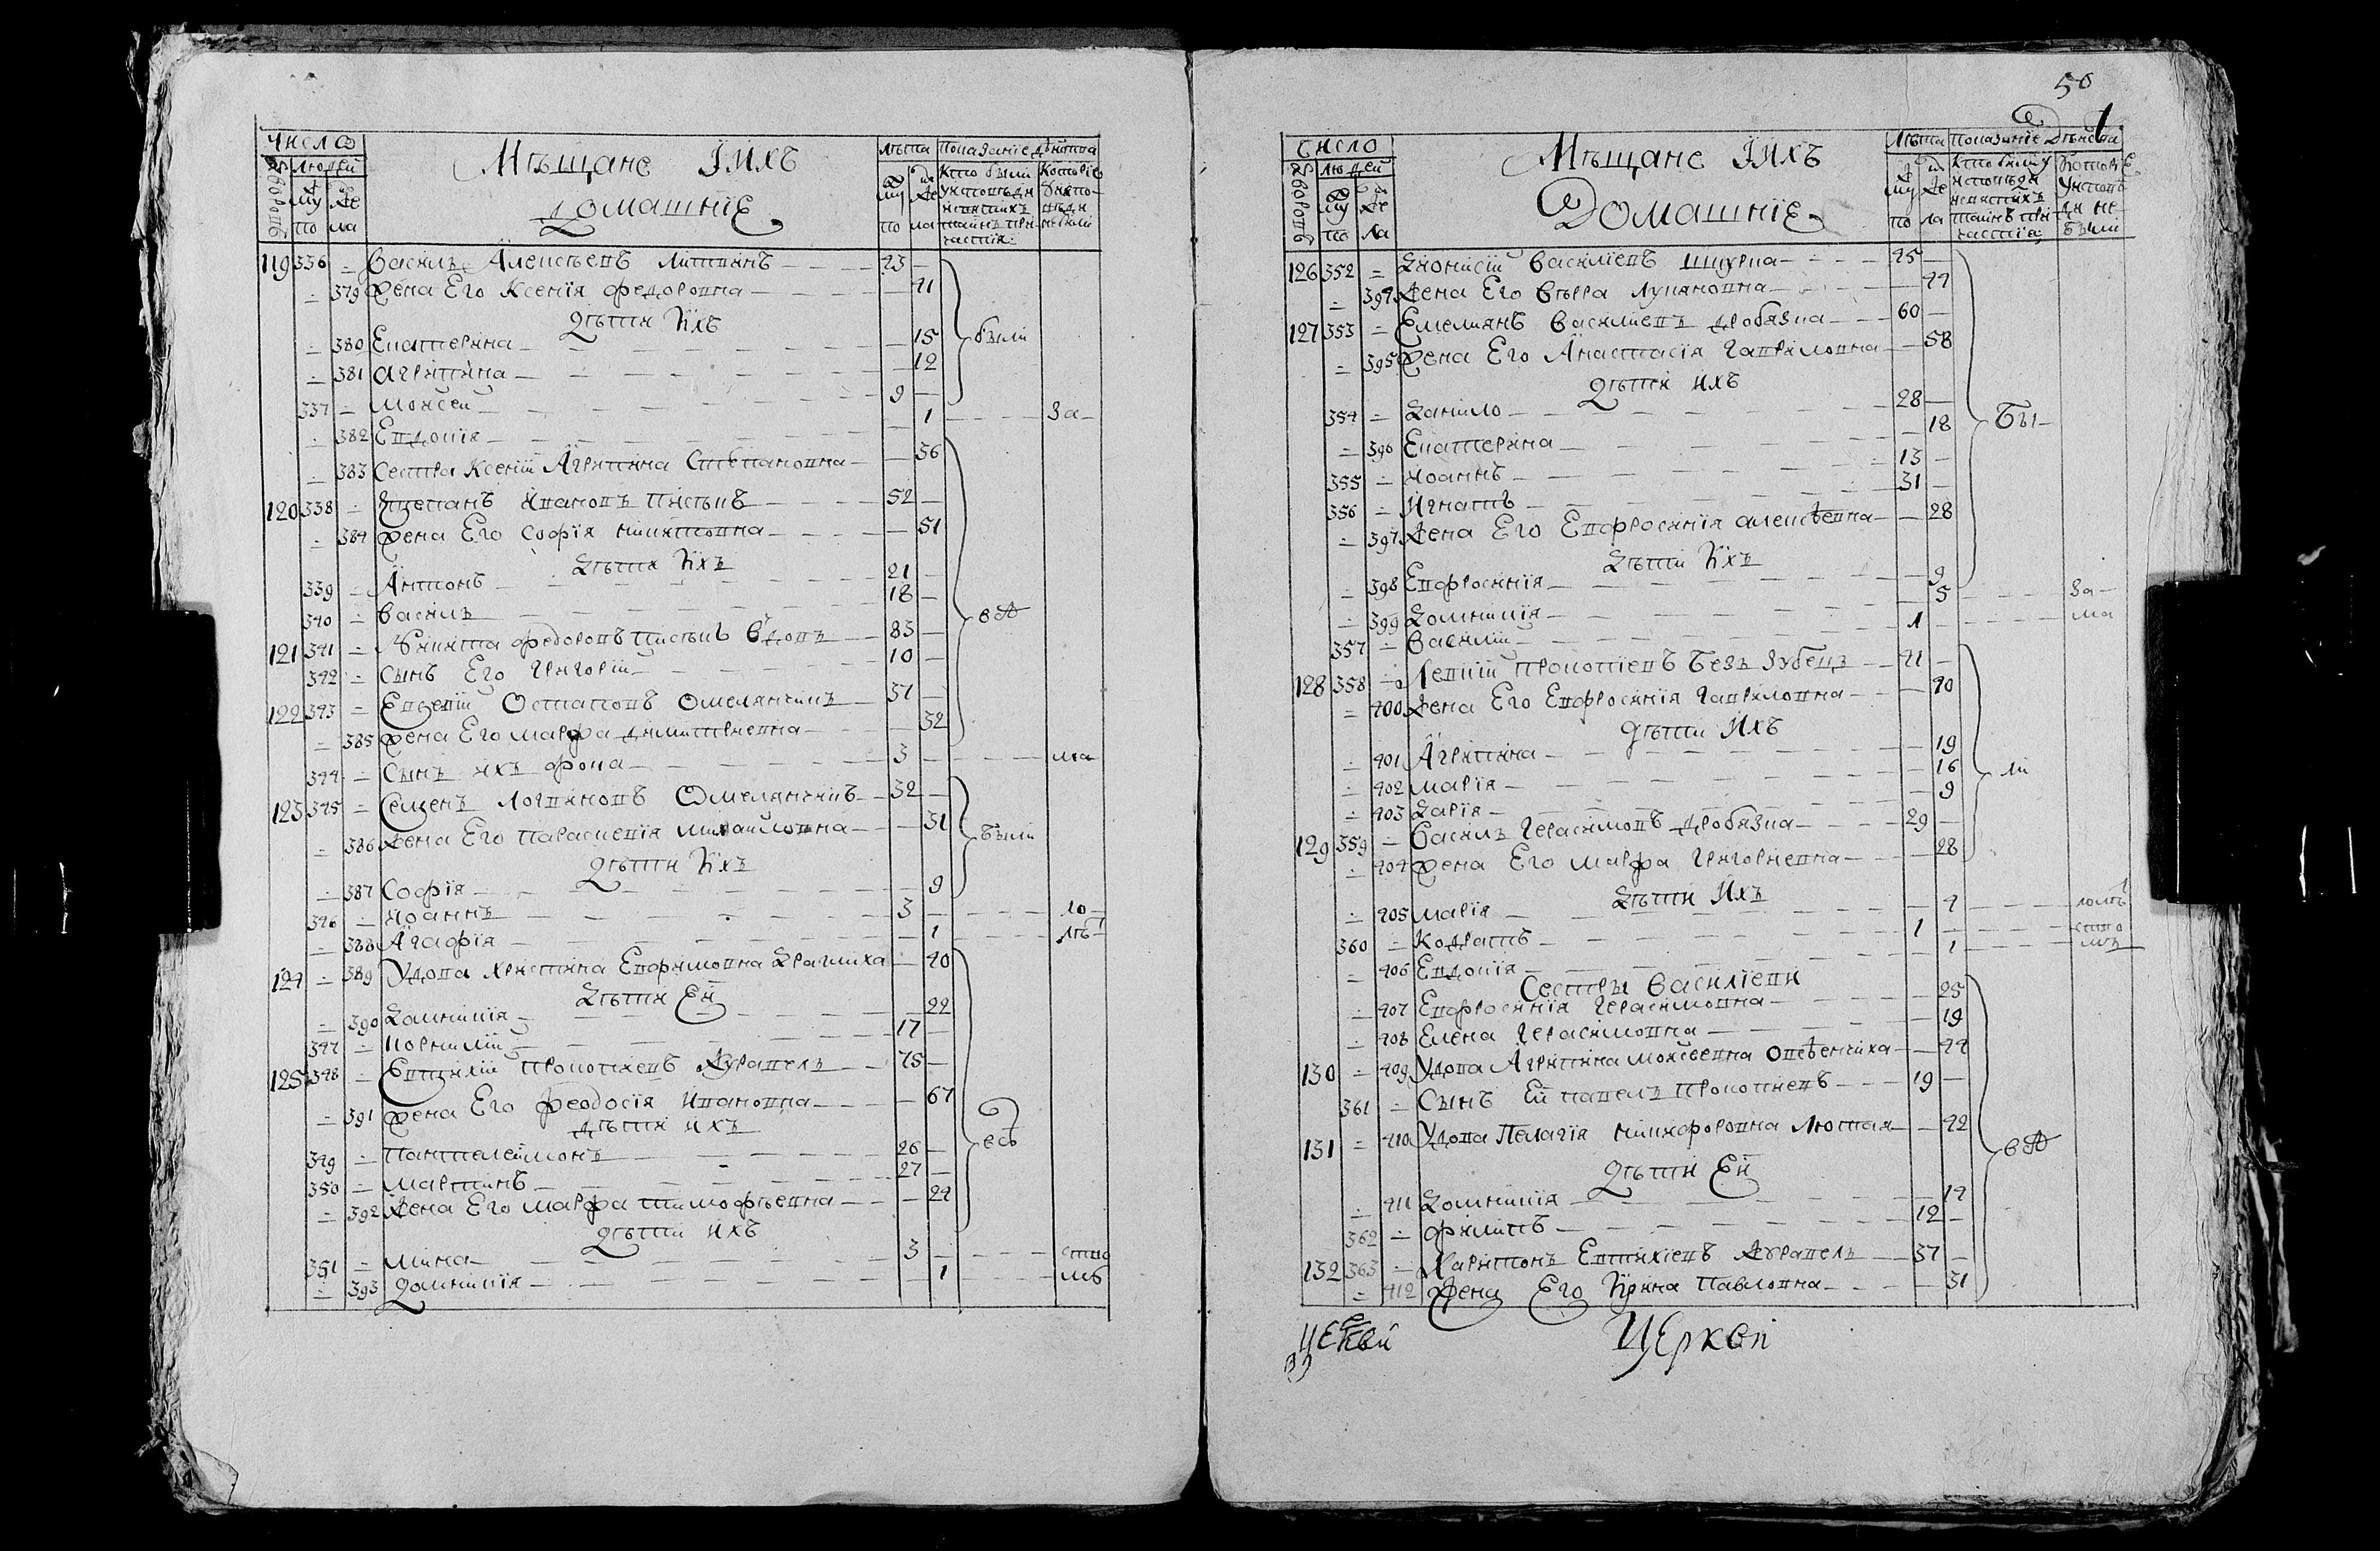 Число
Людей
Дворовъ
му же
по ла
Мѣщане Iихъ
Домашнїе
Лѣта
му же
по ла
Показанїе дѣйства
Кто были у исповѣди и святыхъ таинъ причастїя
Которїе у исповѣди небыли
119 336 – Василъ Алексѣевъ Литвинъ – 43 –
– 379 Жена Его Ксенїя Федоровна – – 41
Дѣти Ихъ
– 380 Екатерина – – 15 были
– 381 Агрипина – – 12
337 – Моисей – 9 –
– 382 Евдокїя – – 1 – За
– 383 Сестра Ксенїи Агрипина Степановна – – 36
120 338 – Стефанъ Ивановъ – 52 –
– 384 Жена Его Софїя Никитовна – – 51
Дѣти Ихъ
339 – Антонъ – 21 –
340 – Василъ – 18 –
121 341 – Никита Федоровъ вдовъ – 83 –
342 – Сынъ Его Григорїй – 10 –
122 343 – Евсевїй Остаповъ Омелянчикъ – 37 –
– 385 Жена Его Марфа Димитриевна – – 32
344 – Сынъ ихъ Фока – 3 – ма
123 345 – Семенъ Логвиновъ Омелянчикъ – 32 –
– 386 Жена Его Параскевїя Михайловна – – 31 были
Дѣти Ихъ
– 387 Софїя – – 9
346 – Иоаннъ – 3 – ло
– 388 Агафїя – – 1 – лѣ
124 – 389 Удова Христина Ефримовна – – 40
Дѣти Ей
– 390 Домникїя – – 22
347 – Корнилїй – 17 –
125 348 – Евтихїй Прокопиевъ Журавель – 75 –
– 391 Жена Его Феодосїя Ивановна – – 67
Дѣти ихъ
349 – Пантелеймонъ – 26 –
350 – Мартинъ – 27 –
– 392 Жена Его Марфа Тимофѣевна – – 24
Дѣти ихъ
351 – Мина – 3 – ство
– 393 Домникїя – – 1 – мъ
50
Число
Людей
Дворовъ
му же
по ла
Мѣщане Iихъ
Домашнїе
Лѣта
му же
по ла
Показанїе Дѣйства
Кто были у исповѣди и святыхъ таинъ причастїя
Которїе у исповѣди не были
126 352 – Дионисїй Василїевъ Щурка – 45 –
– 394 Жена Его Вѣра Лукяновна – – 44
127 353 – Емелиянъ Василиевъ Дробязка – 60 –
– 395 Жена Его Анастасїя Гавриловна – – 58
Дѣти ихъ
354 – Данило – 28 –
– 396 Екатерина – – 18 Бы
355 – Иоаннъ – 13 –
356 – Игнатъ – 31 –
– 397 Жена Его Ефросинїя Алексѣевна – – 28
Дѣти Ихъ
– 398 Ефросинїя – – 9
– 399 Домникїя – – 5 – За
357 – Василїй – 1 – ма
128 358 – Левкїй Прокопїевъ Беззубецъ – 41 –
– 400 Жена Его Ефросинїя Гавриловна – – 40
Дѣти Ихъ
– 401 Агрипина – – 19
– 402 Марїя – – 16 ли
– 403 Дарїя – – 9
129 359 – Василъ Герасимовъ Дробязка – 29 –
– 404 Жена Его Марфа Григориевна – – 28
Дѣти Ихъ
– 405 Марїя – – 4 – лолѣт
360 – Кодратъ – 1 – ство
– 406 Евдокїя – – 1 – мъ
Сестры Василїеви
– 407 Ефросинїя Герасимовна – – 25
– 408 Елена Герасимовна – – 19
130 – 409 Удова Агрипина Моисѣевна – – 44
361 – Сынъ Ей Павелъ Прокопиевъ – 19 –
131 – 410 Удова Пелагїя Никифоровна Лютая – – 42
Дѣти Ей
– 411 Домникїя – – 14
362 – Филипъ – 12 –
132 363 – Харитонъ Евтихїевъ Журавель – 37 –
– 412 Жена Его Ирина Павловна – – 31
Церкви Церкви